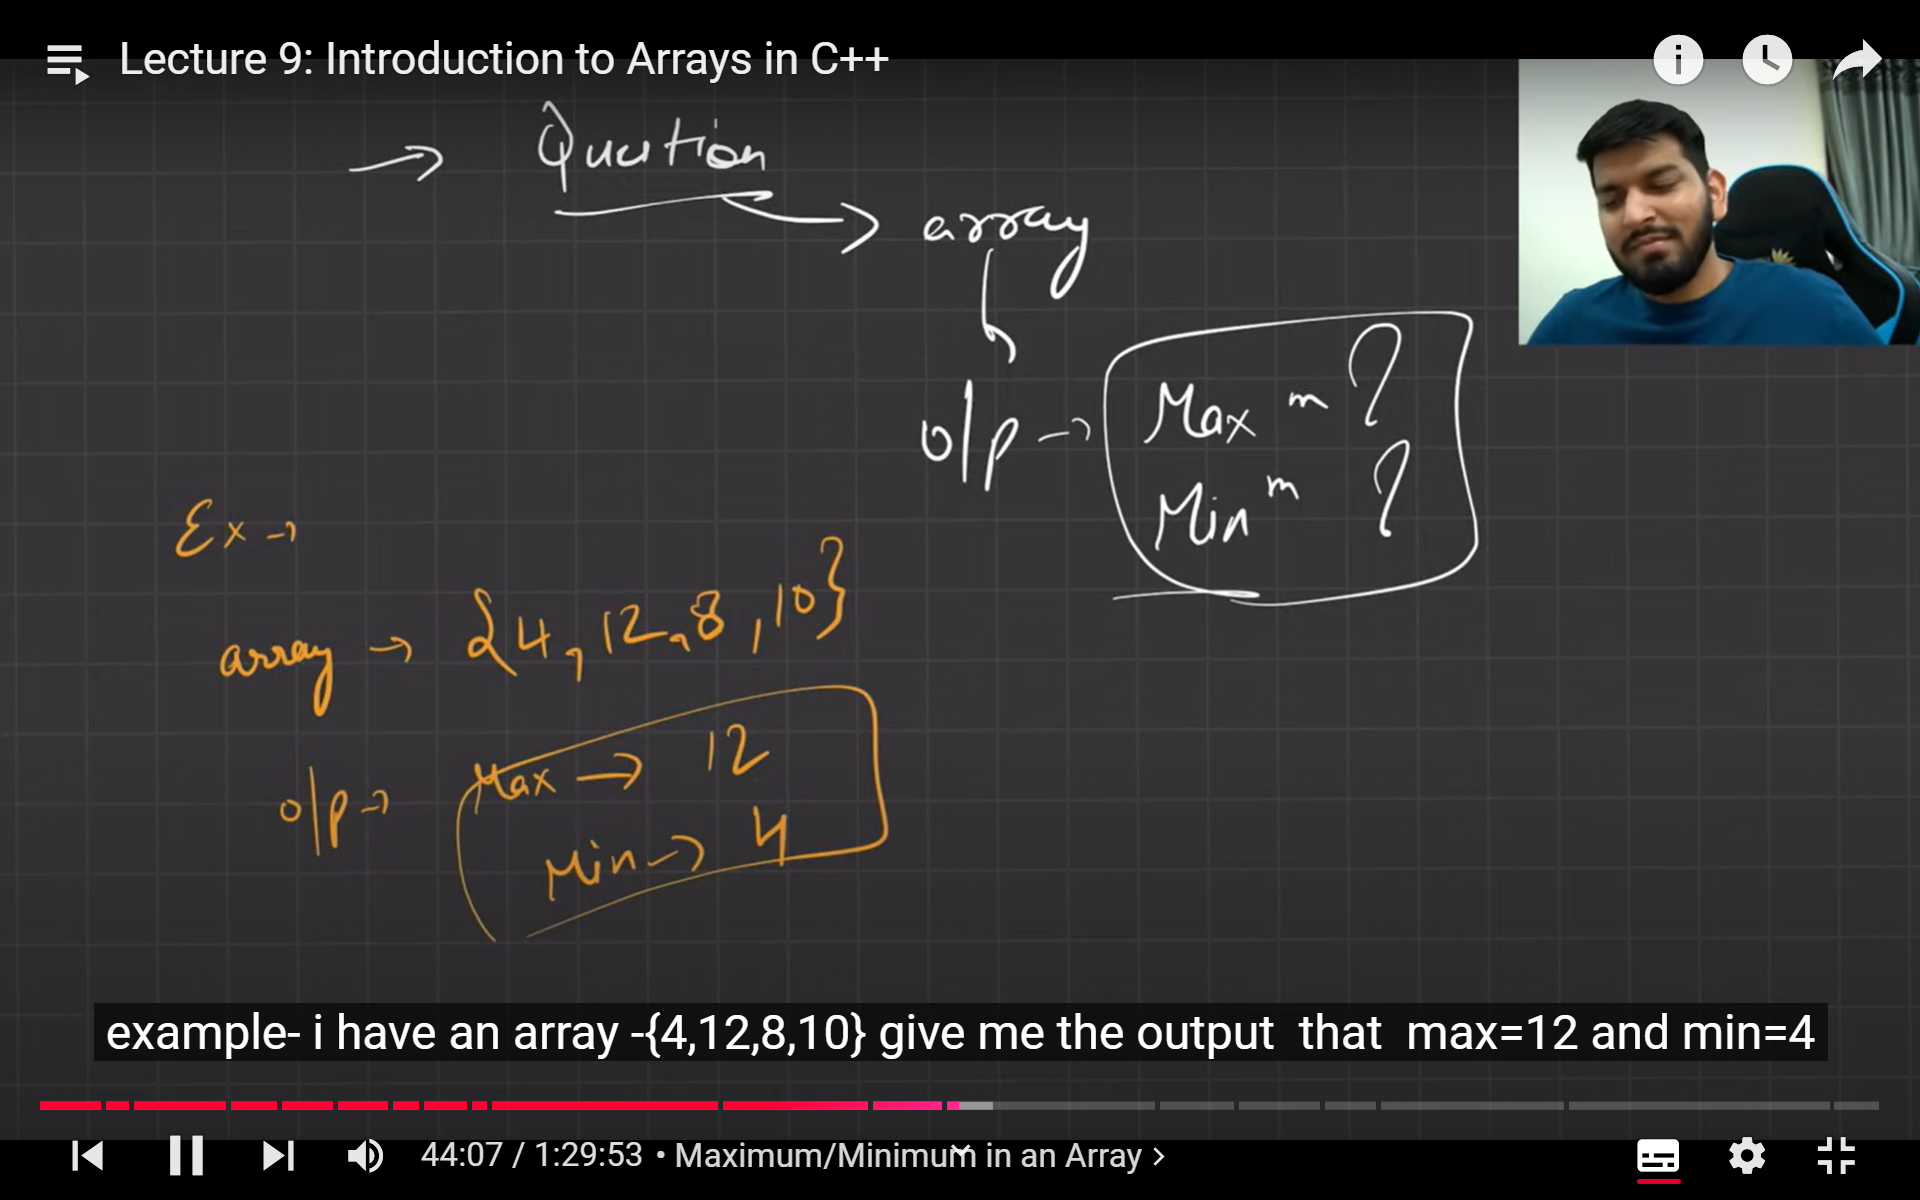 Lecture 9: Introduction to Arrays in C++
→ Question
→ array
o/p → Max m ?
Min m ?
Ex →
array → {4, 12, 8, 10}
o/p → Max → 12
Min → 4
example- i have an array -{4,12,8,10} give me the output that max=12 and min=4
44:07 / 1:29:53 • Maximum/Minimum in an Array >